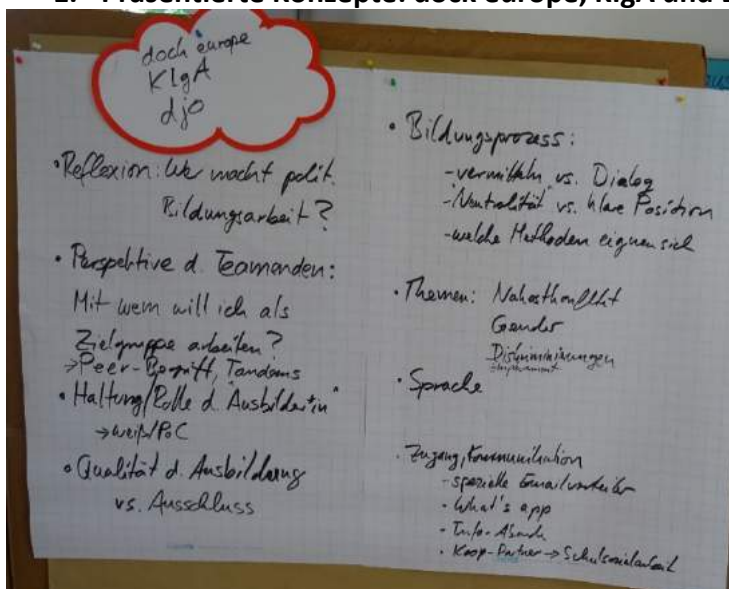 Präsentierte Konzepte: dock europe, KIgA und
doch europe
KIgA
djo
• Reflexion: Wer macht polit.
Bildungsarbeit?
• Perspektive d. Teamenden:
Mit wem will ich als
Zielgruppe arbeiten?
→ Peer-Begriff, Tandems
• Haltung/Rolle d. Ausbilder*in
→ weiß/PoC
• Qualität d. Ausbildung
vs. Ausschluss
• Bildungsprozess:
- "vermitteln" vs. Dialog
- "Neutralität" vs. klare Position
- welche Methoden eignen sich
• Themen: Nahostkonflikt
Gender
Diskriminierungen
Empowerment
• Sprache
• Zugang, Kommunikation
- spezielle Emailverteiler
• What's app
• Info-Abende
• Koop-Partner → Schulsozialarbeit